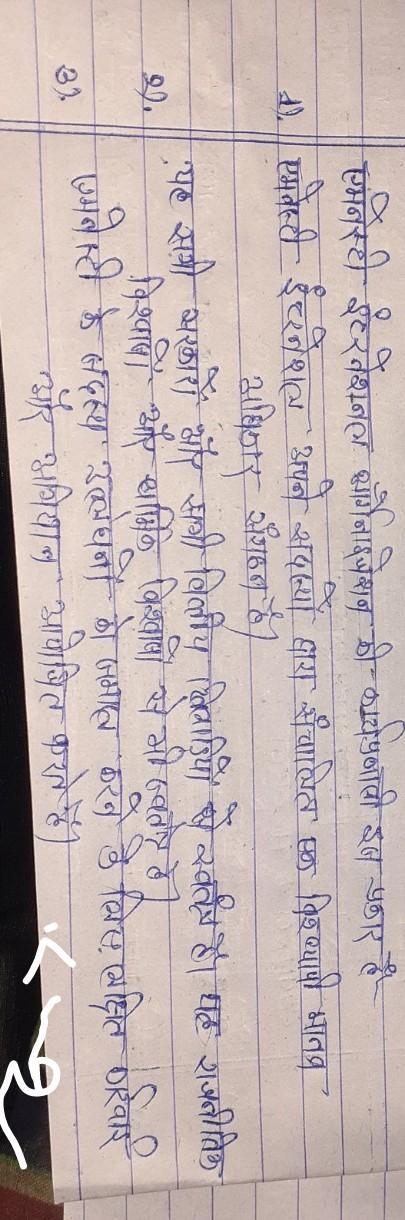 एमनेस्टी इंटरनेशनल ऑर्गनाइजेशन की कार्यप्रणाली इस प्रकार है -
1). एमनेस्टी इंटरनेशनल अपने सदस्यों द्वारा संचालित एक विश्वव्यापी मानव
अधिकार संगठन है।
2). यह सभी सरकारों और सभी वित्तीय से स्वतंत्र है। यह राजनीतिक
विश्वासों और धार्मिक विश्वासों से भी स्वतंत्र है।
3). एमनेस्टी के सदस्य उल्लंघनों को समाप्त करने के लिए
और अभियान आयोजित करते हैं।